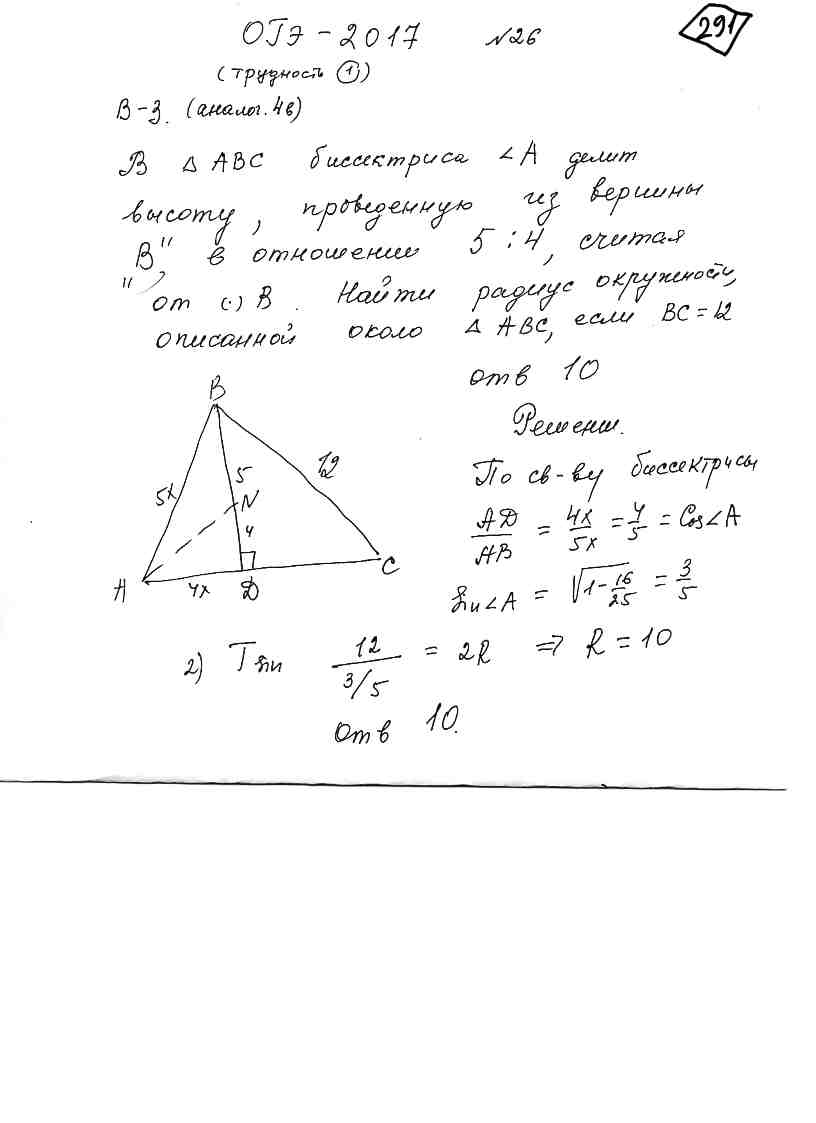 ОГЭ - 2017 №26
291
(трудность 1)
В-3. (аналог. 4в)
В △ АВС биссектриса ∠А делит
высоту, проведенную из вершины
"В", в отношении 5:4, считая
от (·) В. Найти радиус окружности,
описанной около △ АВС, если ВС = 12
отв 10
Решени.
По св-ву биссектрисы
AD/AB = 4x/5x = 4/5 = Cos∠A
Sin∠A = √1-16/25 = 3/5
B
5
12
5x
N
4
A
4x
D
C
2) T sin 12/3/5 = 2R ⇒ R = 10
Отв 10.